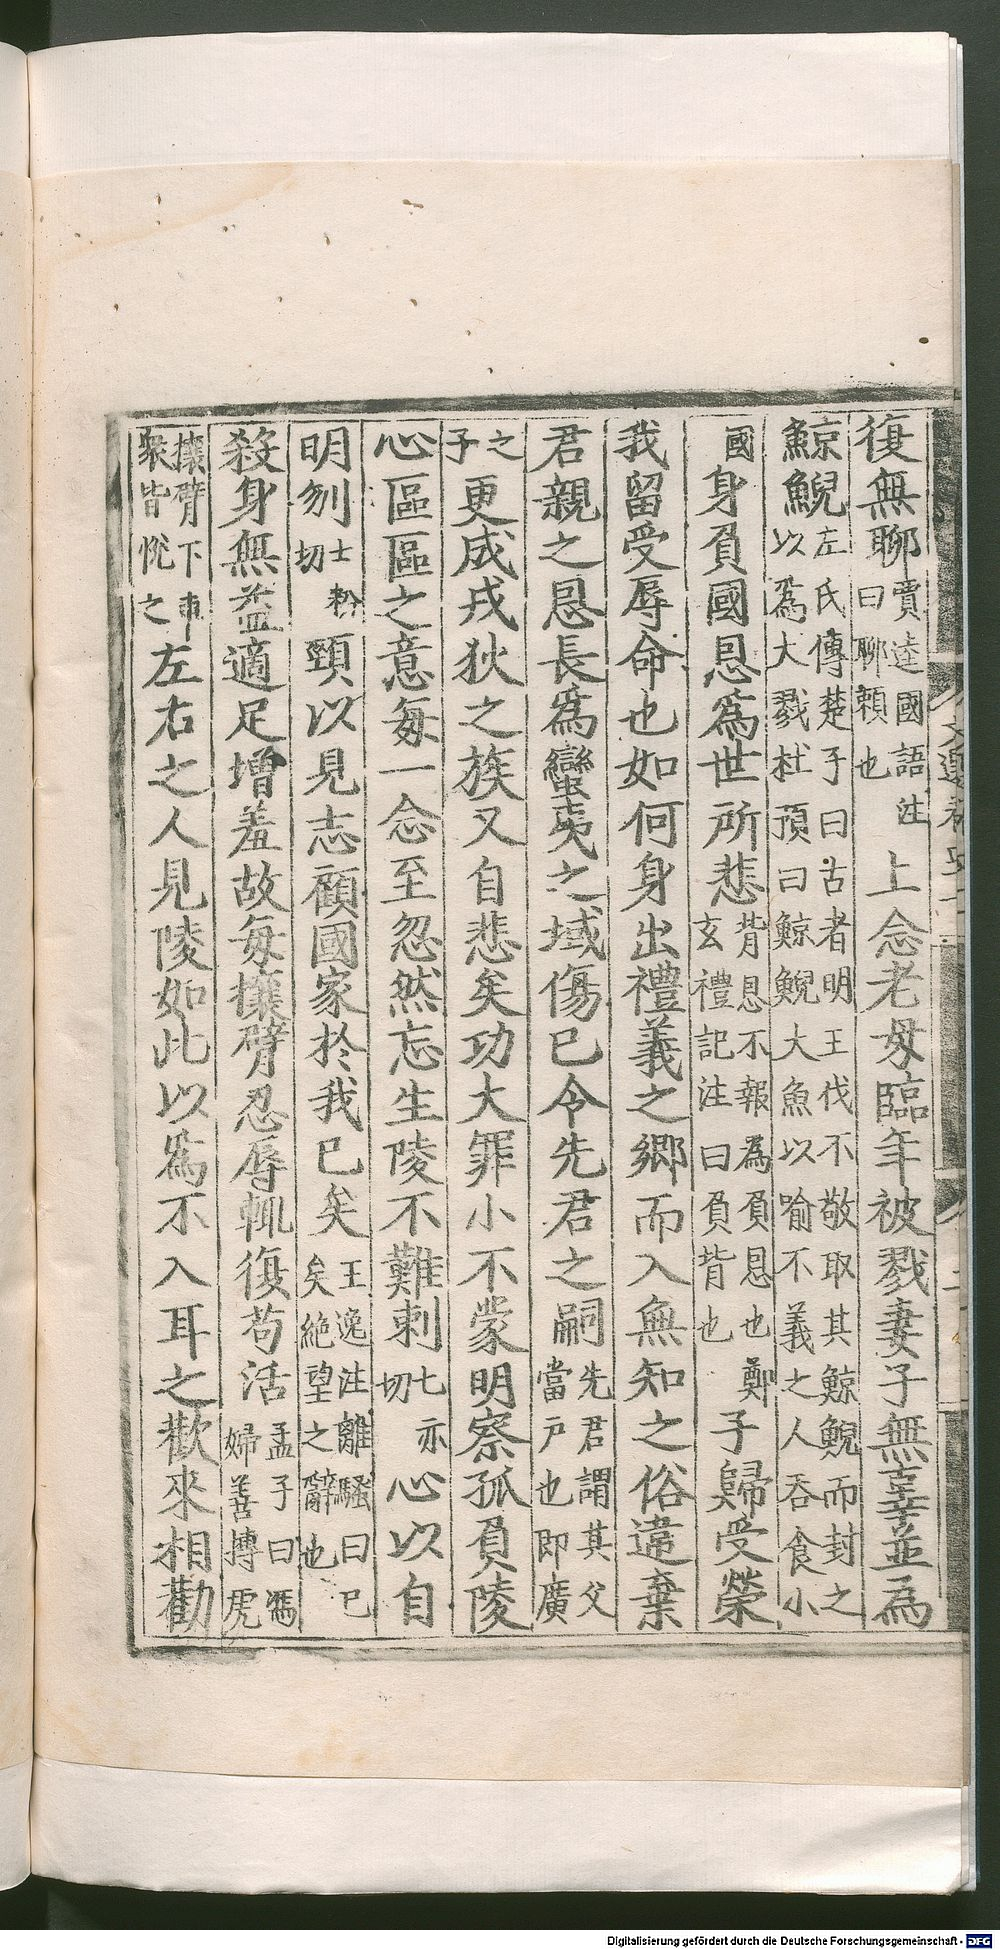 復無聊賈逵國語注曰聊賴也上念老母臨年被戮妻子無辜並為
鯨鯢左氏傳楚子曰古者明王伐不敬取其鯨鯢而封之以為大戮杜預曰鯨鯢大魚以喻不義之人吞食小
國身負國恩為世所悲背恩不報為負恩也鄭玄禮記注曰負背也子歸受榮
我留受辱命也如何身出禮義之鄉而入無知之俗違棄
君親之恩長為蠻夷之域傷已令先君之嗣先君謂其父當戶也即廣
之子更成戎狄之族又自悲矣功大罪小不蒙明察孤負陵
心區區之意每一念至忽然忘生陵不難刺七亦切心以自
明刎士粉切頸以見志顧國家於我已矣王逸注離騷曰已矣絕望之辭也
殺身無益適足增羞故每攘臂忍辱輒復苟活孟子曰馮婦善搏虎
攘臂下車眾皆悅之左右之人見陵如此以為不入耳之歡來相勸
Digitalisierung gefördert durch die Deutsche Forschungsgemeinschaft - DFG